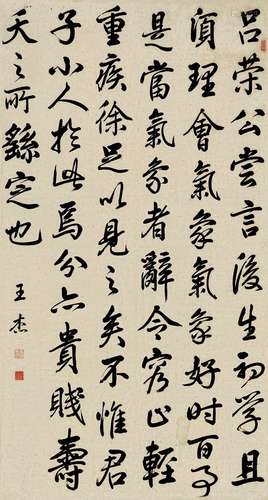 呂榮公嘗言後生初學且
須理會氣象氣象好時百事
是當氣象者辭令容止輕
重疾徐足以見之矣不惟君
子小人於此焉分亦貴賤壽
夭之所繇定也
王杰